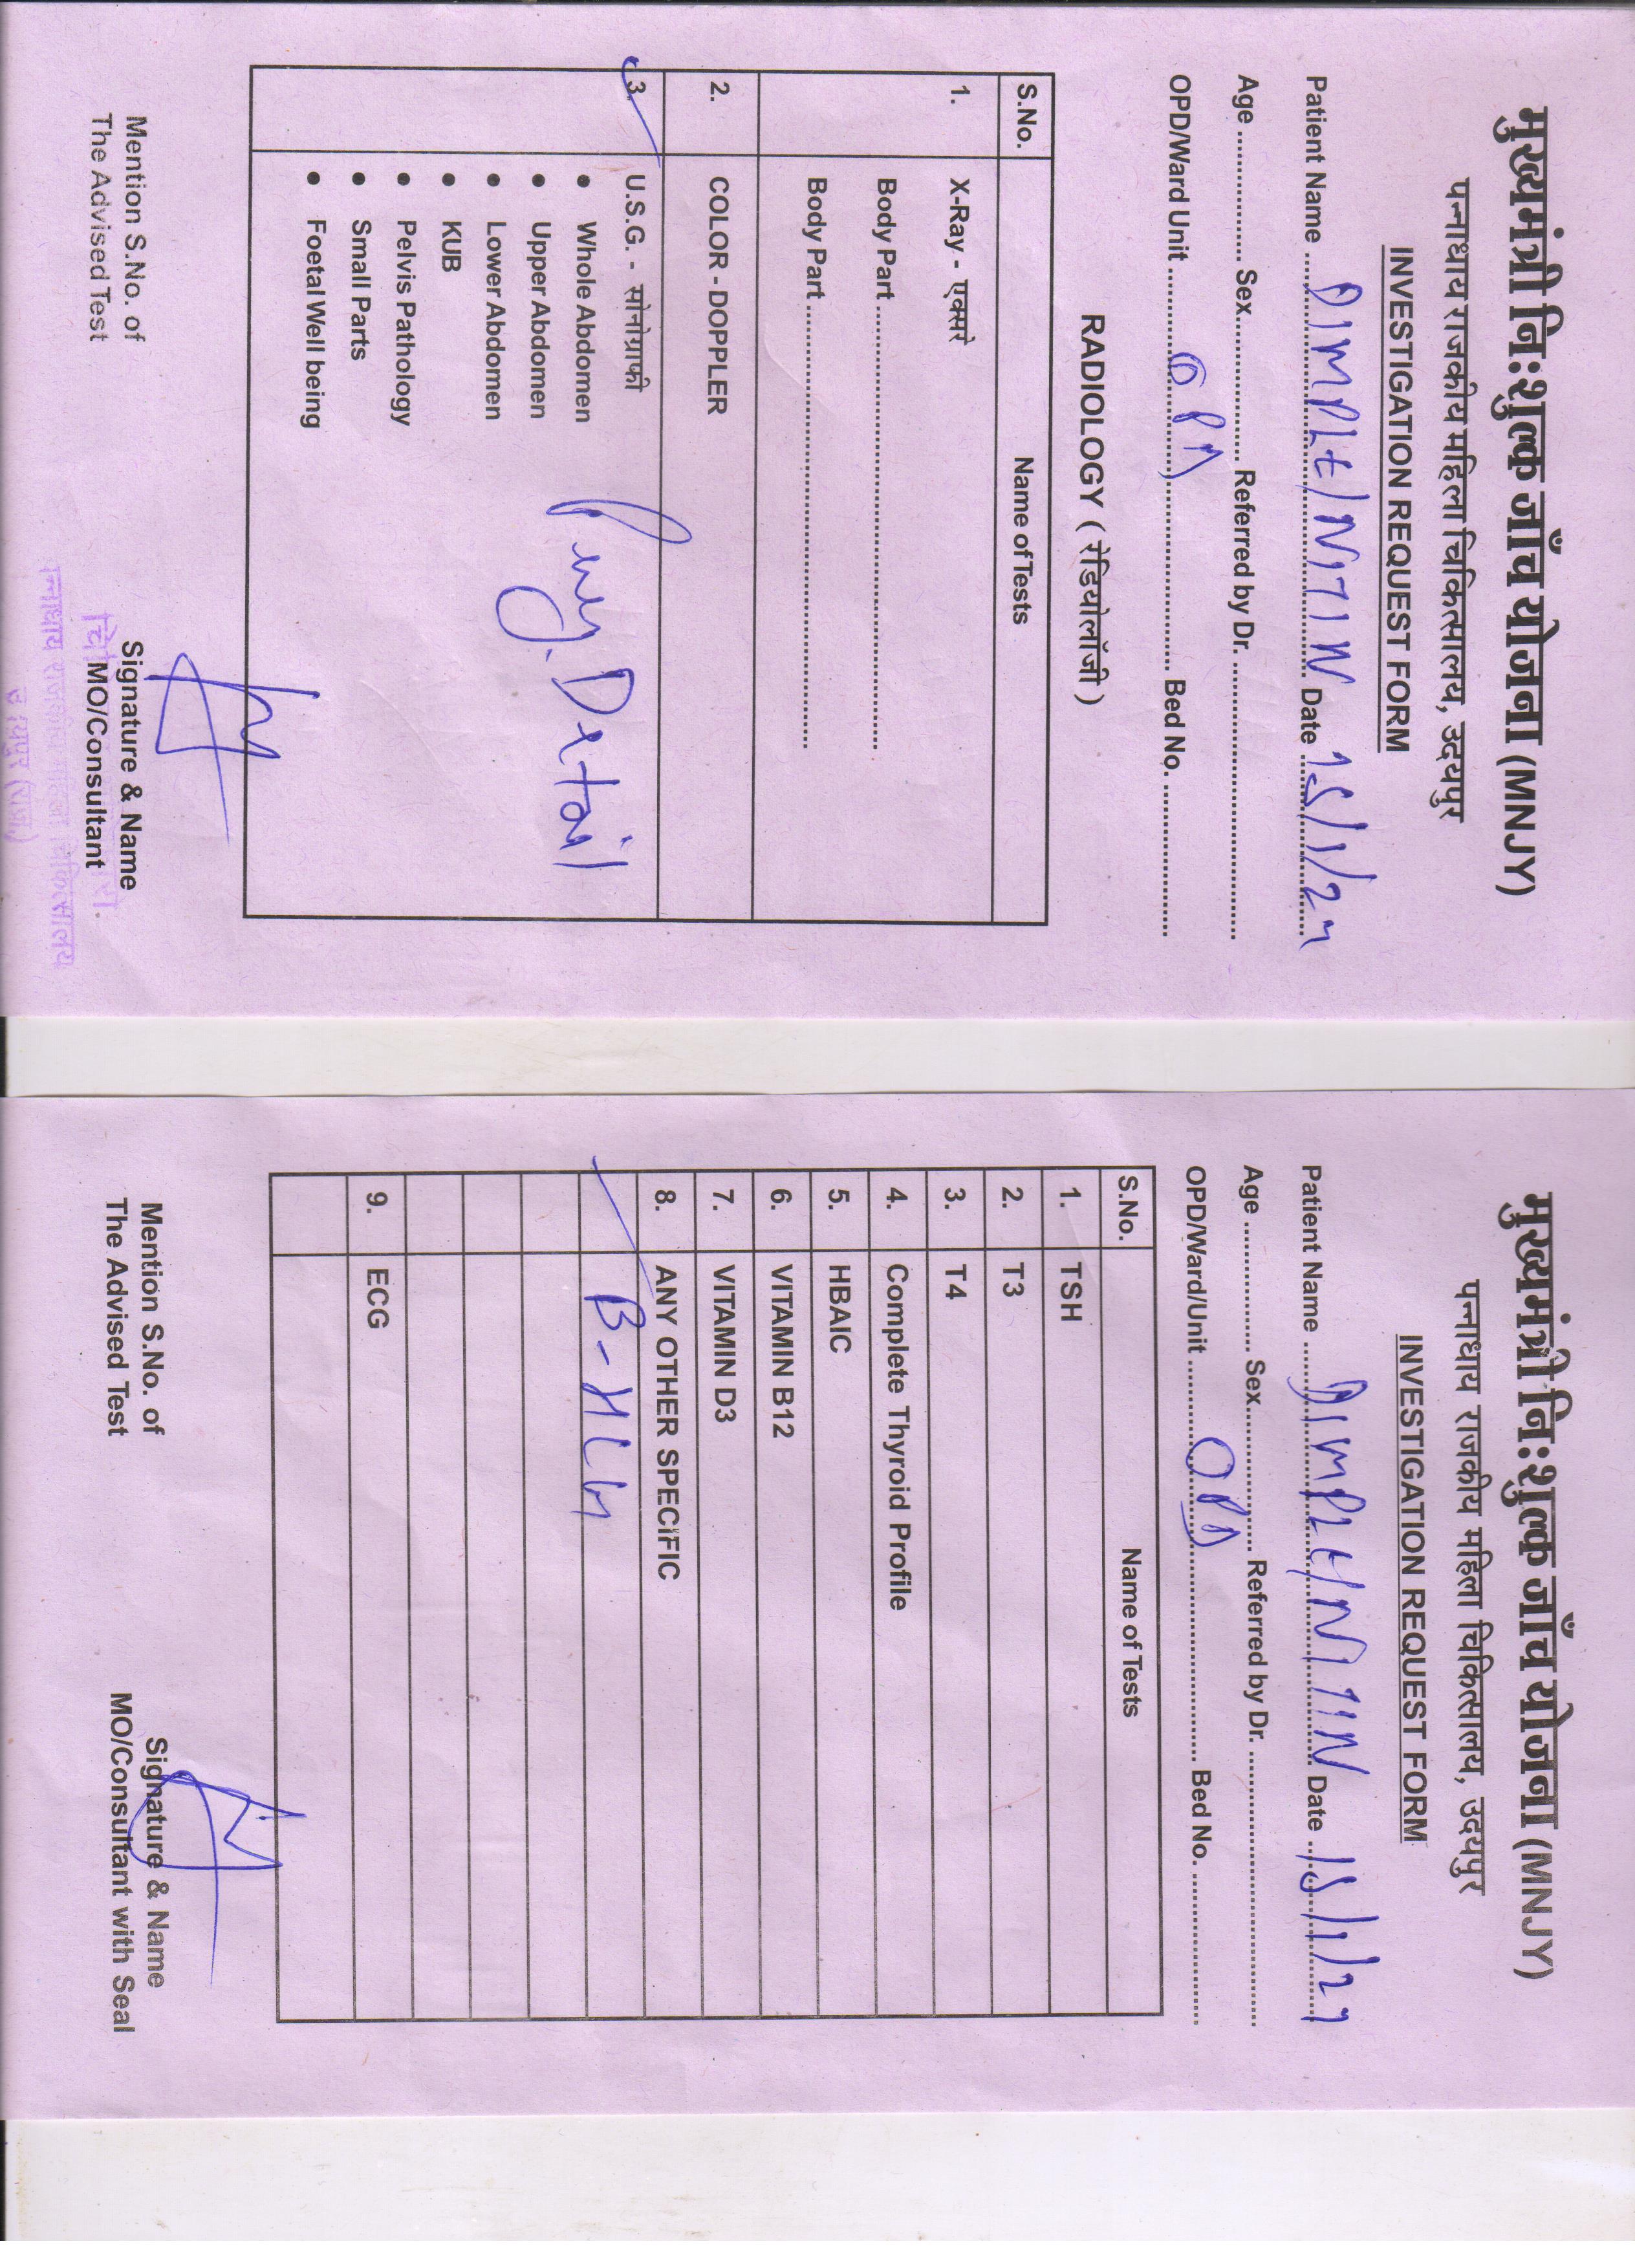 मुख्यमंत्री नि:शुल्क जाँच योजना (MNJY)
पन्नाधाय राजकीय महिला चिकित्सालय, उदयपुर
INVESTIGATION REQUEST FORM
Patient Name ........ DIMPLE/NITIN ........ Date 15/1/24
Age ................ Sex ................ Referred by Dr. ................
OPD/Ward Unit ........ OPD ........ Bed No. ................
RADIOLOGY ( रेडियोलॉजी )
S.No. Name of Tests
1. X-Ray - एक्सरे
Body Part ................
Body Part ................
2. COLOR - DOPPLER
3. U.S.G. - सोनोग्राफी
• Whole Abdomen
• Upper Abdomen
• Lower Abdomen
• KUB
• Pelvis Pathology
• Small Parts
• Foetal Well being
Detail
Mention S.No. of
The Advised Test
Signature & Name
MO/Consultant
पन्नाधाय राजकीय महिला चिकित्सालय
उदयपुर (राज.)
मुख्यमंत्री नि:शुल्क जाँच योजना (MNJY)
पन्नाधाय राजकीय महिला चिकित्सालय, उदयपुर
INVESTIGATION REQUEST FORM
Patient Name ........ DIMPLE/NITIN ........ Date 15/1/24
Age ................ Sex ................ Referred by Dr. ................
OPD/Ward/Unit ........ OPD ........ Bed No. ................
S.No. Name of Tests
1. TSH
2. T3
3. T4
4. Complete Thyroid Profile
5. HBAIC
6. VITAMIN B12
7. VITAMIN D3
8. ANY OTHER SPECIFIC
B-HCG
9. ECG
Mention S.No. of
The Advised Test
Signature & Name
MO/Consultant with Seal